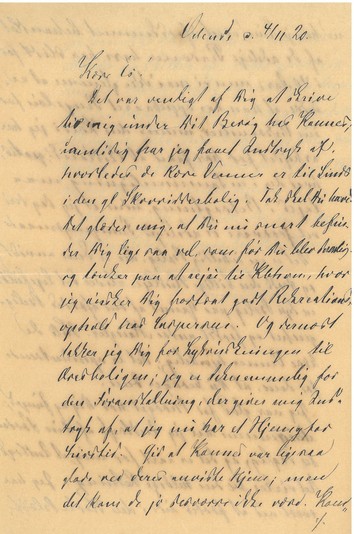 Odense d. 4/11 20.
Kære Lo.
Det var venligt af Dig at skrive
til mig under Dit Besøg hos Hannes,
samtidig har jeg faaet Indtryk af,
hvorledes de kære Venner er til Sinds
i den gl Skovridderbolig. Tak skal Du have.
Det glæder mig, at Du nu snart befin-
der Dig lige saa vel, som før Du blev
og tænker paa at rejse til hvor
jeg ønsker Dig fortsat godt Rekreations-
ophold hos Og dernæst
takker jeg Dig for Lykønskningen til
jeg er taknemmelig for
den Foranstaltning, der giver mig Ind-
tryk af, at jeg nu har et Hjem for
Livstid. Gid at Hannes var ligesaa
glade ved deres anviste Hjem; men
det kan de jo desværre ikke være.